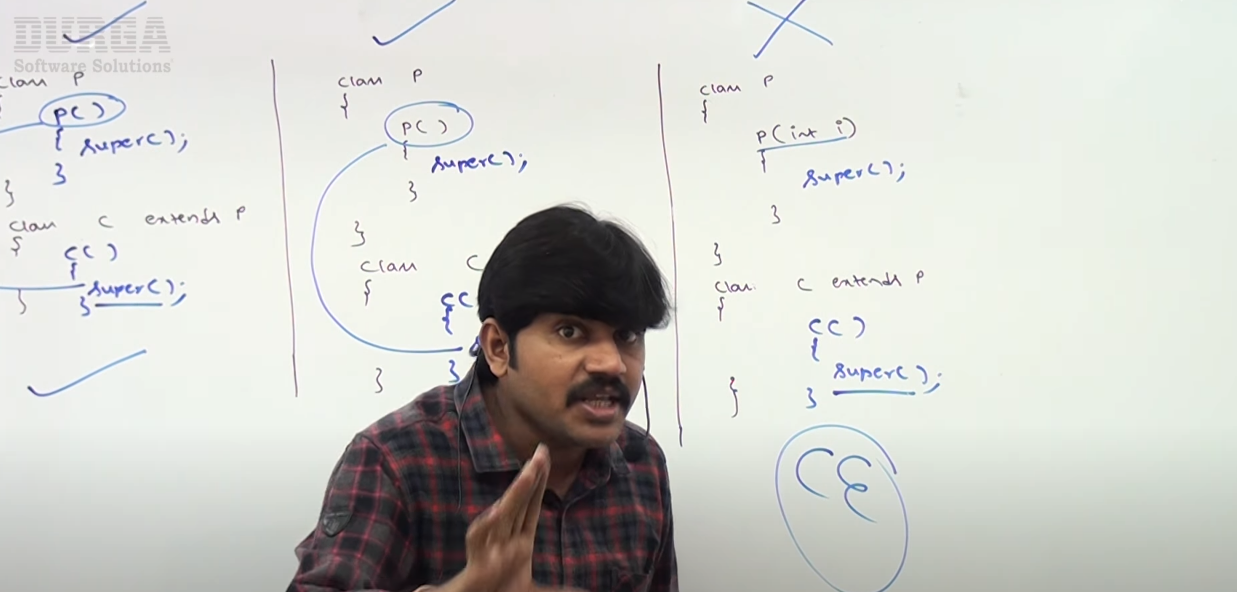 DURGA
Software Solutions
class P
{
P()
{ super();
}
}
class C extends P
{
C()
{
super();
}
}
class P
{
P()
{
super();
}
}
class C
{
C(
{
}
}
class P
{
P(int i)
{
super();
}
}
class C extends P
{
C()
{
super();
}
}
CE